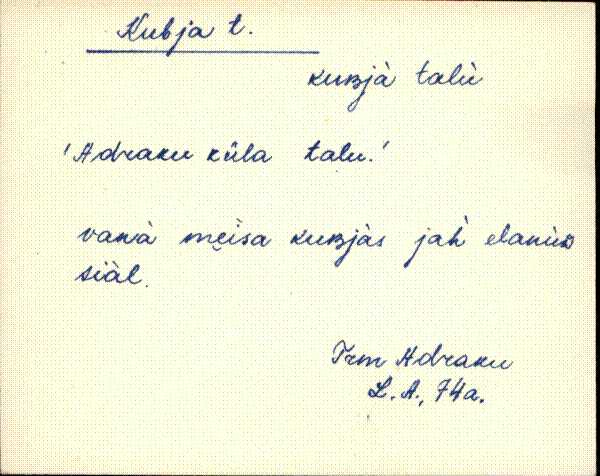 Kubja t.
kuʙjà talù
'Adraku küla talu.'
vanà meìsa kuʙjàs jah elanùᴅ
siàl.
Trm Adraku
L. A., 74a.